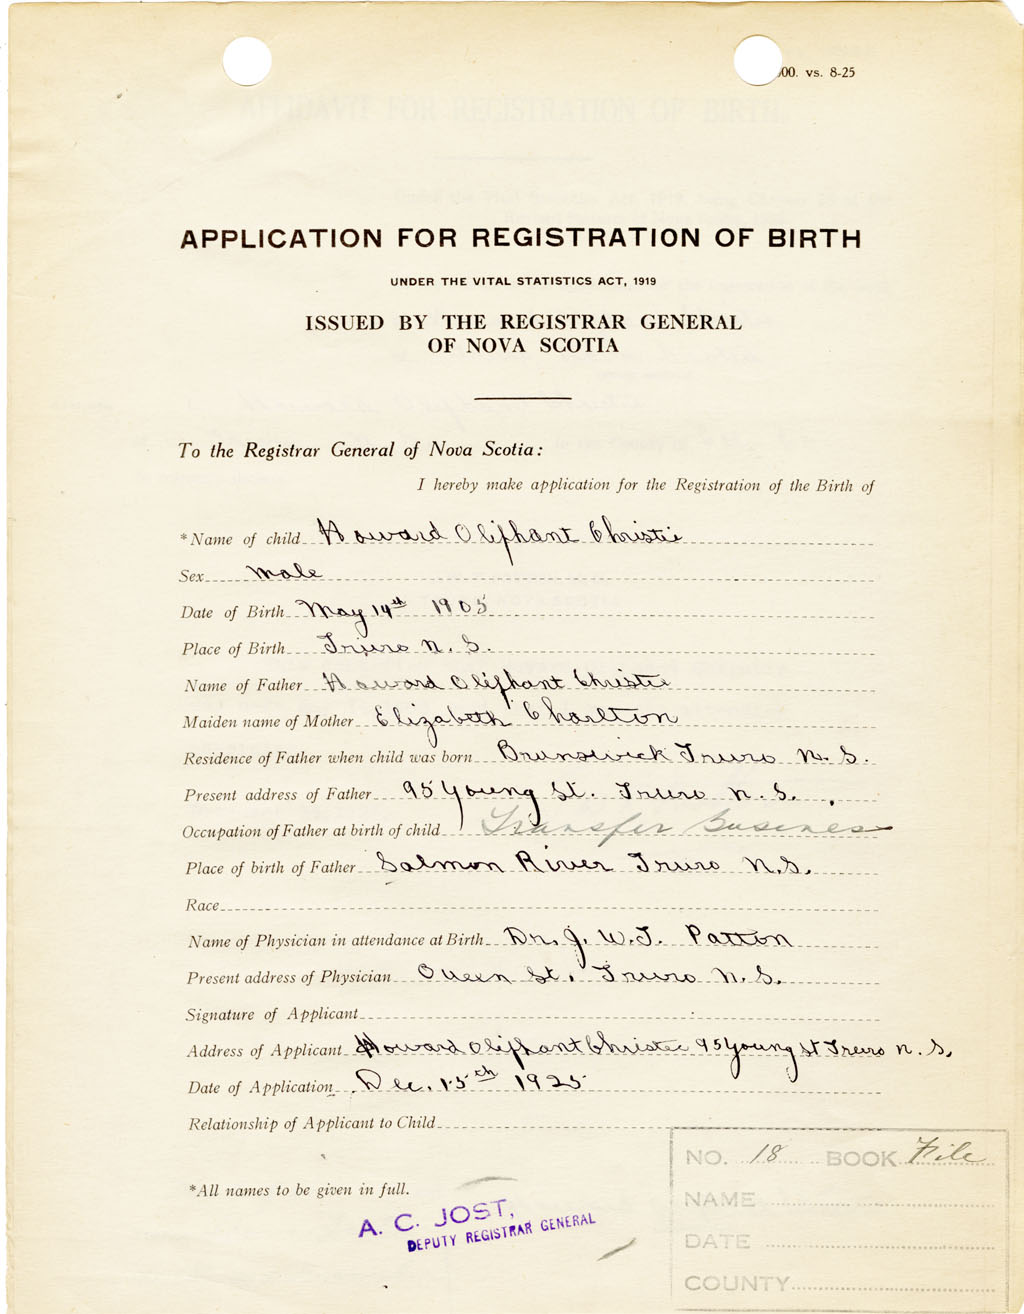 00. vs. 8-25
APPLICATION FOR REGISTRATION OF BIRTH
UNDER THE VITAL STATISTICS ACT, 1919
ISSUED BY THE REGISTRAR GENERAL
OF NOVA SCOTIA
To the Registrar General of Nova Scotia:
I hereby make application for the Registration of the Birth of
*Name of child Howard Oliphant Christie
Sex male
Date of Birth May 14th 1905
Place of Birth Truro N. S.
Name of Father Howard Oliphant Christie
Maiden name of Mother Elizabeth Charlton
Residence of Father when child was born Brunswick Truro N. S.
Present address of Father 95 Young St. Truro N. S.
Occupation of Father at birth of child Transfer Busines
Place of birth of Father Salmon River Truro N.S.
Race
Name of Physician in attendance at Birth Dr. J. W. T. Patton
Present address of Physician Queen St. Truro N. S.
Signature of Applicant
Address of Applicant Howard Oliphant Christie 95 Young St Truro N. S.
Date of Application Dec. 15th 1925
Relationship of Applicant to Child
NO. 18 BOOK File
*All names to be given in full.
NAME
A. C. JOST,
DEPUTY REGISTRAR GENERAL
DATE
COUNTY